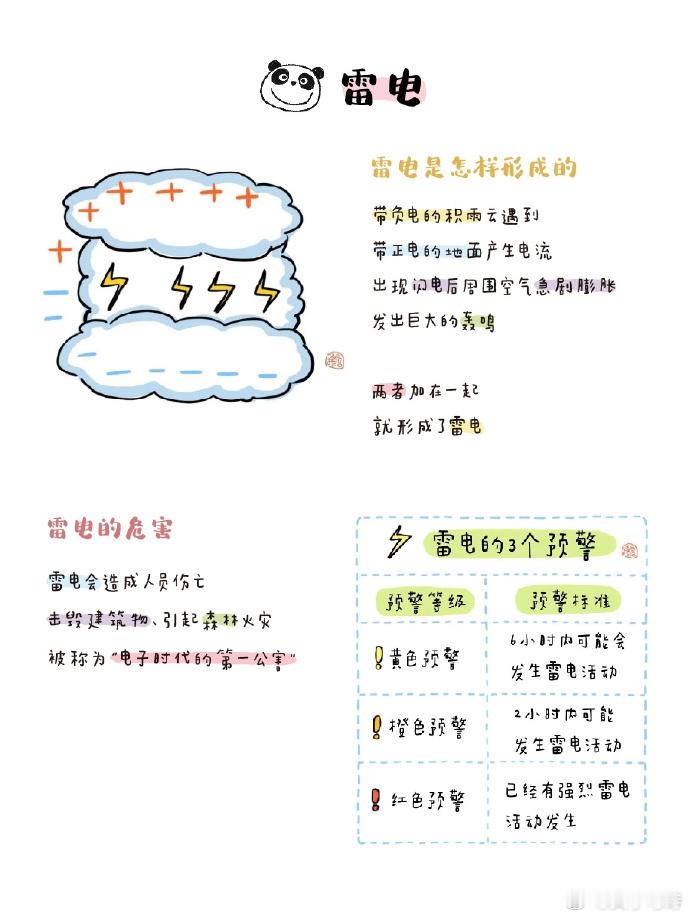 雷电
雷电是怎样形成的
带负电的积雨云遇到
带正电的地面产生电流
出现闪电后周围空气急剧膨胀
发出巨大的轰鸣
两者加在一起
就形成了雷电
雷电的危害
雷电会造成人员伤亡
击毁建筑物、引起森林火灾
被称为"电子时代的第一公害"
雷电的3个预警
预警等级 预警标准
黄色预警 6小时内可能会
发生雷电活动
橙色预警 2小时内可能
发生雷电活动
红色预警 已经有强烈雷电
活动发生